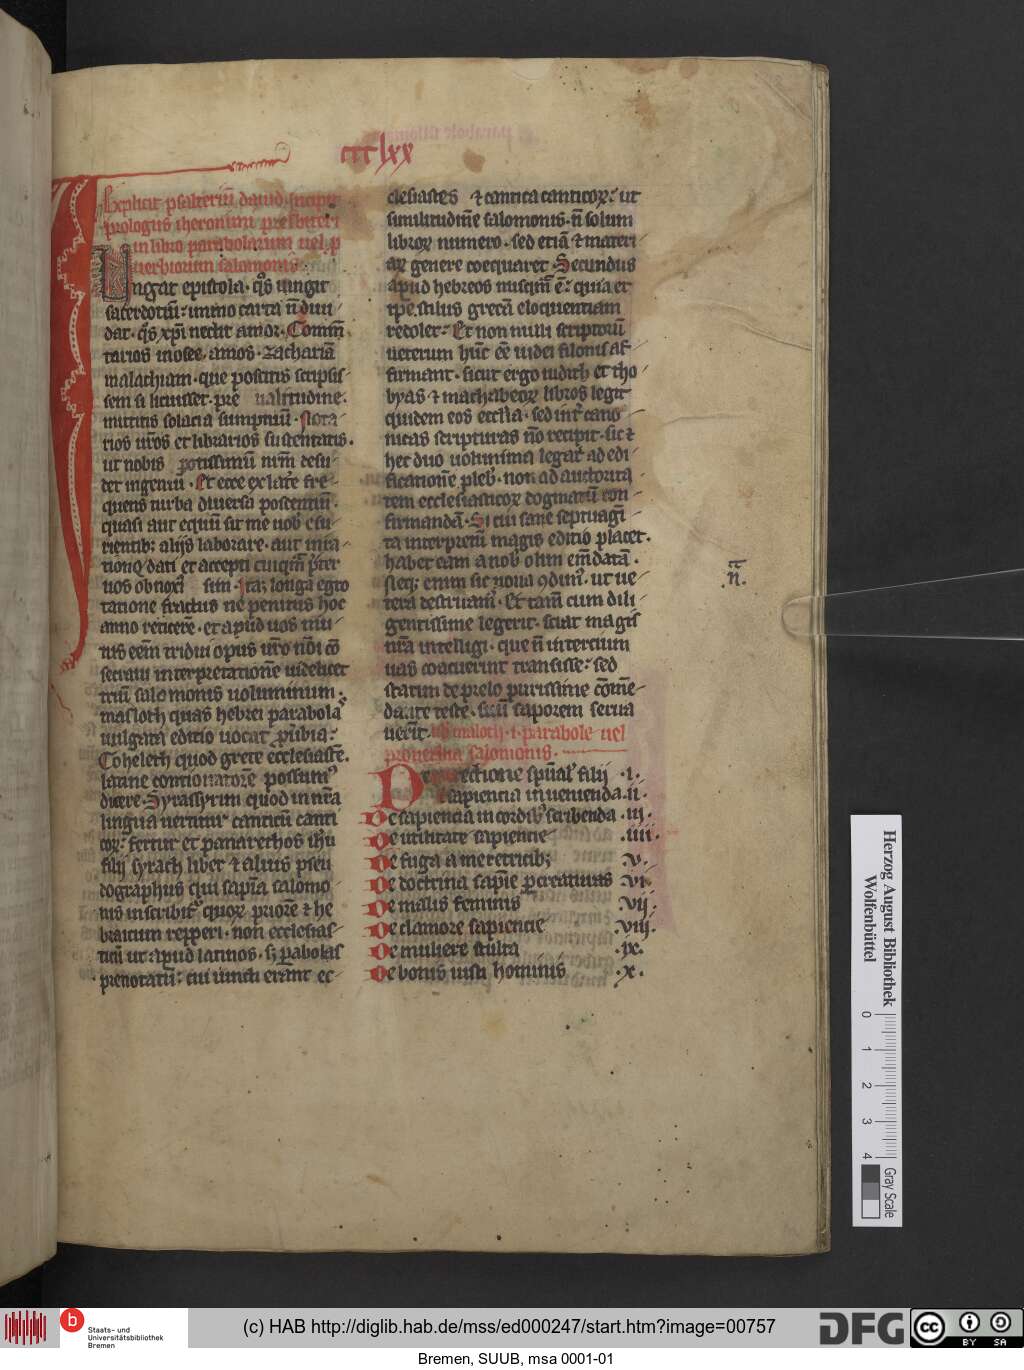 ccclxx
Explicit psalteriū dauid Incipit
prologus iheronimi presbiteri
in libro parabolarum uel ꝓ
uerbiorum salomonis
Iungat epistola · q̄s iungit
sacerdotiū · immo carta n̄ diui
dat · q̄s xp̄i nectit amor · Comm̄
tarios in osee · amos · zachariā
malachiam · que poscitis scripsis
sem si licuisset · pre ualitudine ·
mittitis solacia sumptuū · Nota
rios ur̄os et librarios sustentatis ·
ut nobis potissimū nr̄m desu
det ingeniū · Et ecce ex latere fre
quens turba diuersa poscentiū ·
quasi aut equū sit me uob̓ esu
rientibꝫ alijs laborare · aut in ra
tione dati et accepti cuiqm̄ preter
uos obnoxiꝰ sim · Itaꝫ longa egro
tatione fractus ne penitus hoc
anno reticerē · et apud uos mu
tus eēm tridui opus ur̄o nōi cō
secraui interpretationē uidelicet
triū salomonis uoluminum ·
masloth quas hebrei parabolas
uulgata editio uocat ꝓuerbia ·
Coheleth quod grece ecclesiastē ·
latine concionatorē possumꝰ
dicere · Syrassyrim quod in nr̄a
lingua uertitur canticū canti
coꝝ · fertur et panarethos ih̄u
filij syrach liber ⁊ alius pseu
dographus qui sapīa salomo
nis inscribit̓ quoꝝ priorē ⁊ he
braicum repperi · non ecclesias
ticū ut apud latinos · sꝫ ꝑabolas
prenotatū · cui iuncti erant ec
clesiastes ⁊ cantica canticoꝝ · ut
similitudinē salomonis · n̄ solum
libroꝝ numero · sed etiā ⁊ materi
aꝝ genere coequaret · Secundus
apud hebreos nusqm̄ ē · quia et
ipe stilus grecā eloquentiam
redolet · Et non nulli scriptorū
ueterum hūc eē iudei filonis af
firmant · sicut ergo iudith et tho
byas ⁊ machabeoꝝ libros legit
quidem eos eccl̄ia · sed int̓ cano
nicas scripturas nō recipit · sic ⁊
hec duo uolumina legat ad edi
ficationē plebꝭ · non ad auctorita
tem ecclesiasticoꝝ dogmatū con
firmandā · Si cui sane septuagī
ta interpretū magis editio placet ·
habet eam a nob̓ olim em̄datā ·
Neqꝫ enim sic noua ꝯdimꝰ · ut ue
tera destruamꝰ · Et tam̄ cum dili
gentissime legerit · sciat magis
nr̄a intelligi · que n̄ in tercium
uas coacuerint transisse · sed
statim de prelo purissime cōme
data teste · suū saporem serua
uerīt · masloth · i · parabole uel
prouerbia salomonis ·
De directione spūalꝭ filij · i ·
sapiencia inuenienda · ii ·
De sapiencia in cordibꝰ scribenda · iij ·
De utilitate sapiencie · iiii ·
De fuga a meretricibꝫ · v ·
De doctrina sapīe ꝓcreaturas · vi ·
De malis feminis · vij ·
De clamore sapiencie · viij ·
De muliere stulta · ix ·
De bonis uisti hominis · x ·
Herzog August Bibliothek
Wolfenbüttel
0 1 2 3 4
Gray Scale
b
Staats- und
Universitätsbibliothek
Bremen
(c) HAB http://diglib.hab.de/mss/ed000247/start.htm?image=00757
DFG
cc BY SA
Bremen, SUUB, msa 0001-01